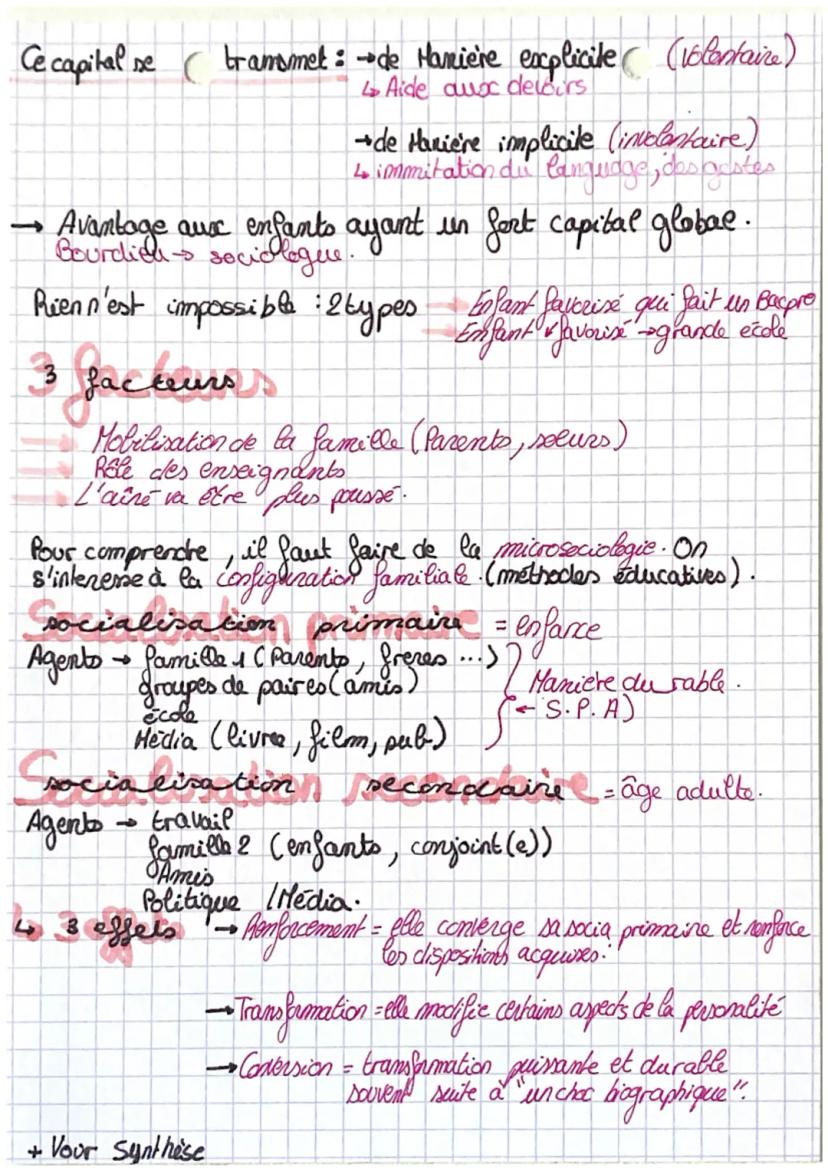 Ce capital se transmet : → de Manière explicite (volontaire)
↳ Aide aux devoirs
→ de Manière implicite (involontaire)
↳ immitation du language, des gestes
→ Avantage aux enfants ayant un fort capital global.
Bourdieu → sociologue.
Rien n'est impossible : 2 types → Enfant favorisé qui fait un Bacpro
→ Enfant favorisé → grande école
3 facteurs
→ Mobilisation de la famille (Parents, soeurs)
→ Rôle des enseignants
→ L'aîné va être plus poussé.
Pour comprendre, il faut faire de la microsociologie. On
s'interesse à la configuration familiale. (méthodes éducatives).
Socialisation primaire = enfance
Agents → famille 1 (Parents, freres ...)
groupes de paires (amis)
Manière durable.
école
← S.P.A)
Média (livre, film, pub)
Socialisation secondaire = âge adulte.
Agents → travail
famille 2 (enfants, conjoint(e))
Amis
Politique / Média.
↳ 3 effets → Renforcement = elle converge sa socia primaire et renforce
les dispositions acquises.
→ Transformation = elle modifie certains aspects de la personalité
→ Conversion = transformation puissante et durable
souvent suite à "un choc biographique".
+ Voir Synthèse